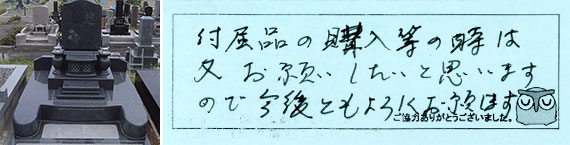 付属品の購入等の時は
又お願いしたいと思います
ので今後ともよろしくお願します
ご協力ありがとうございました。